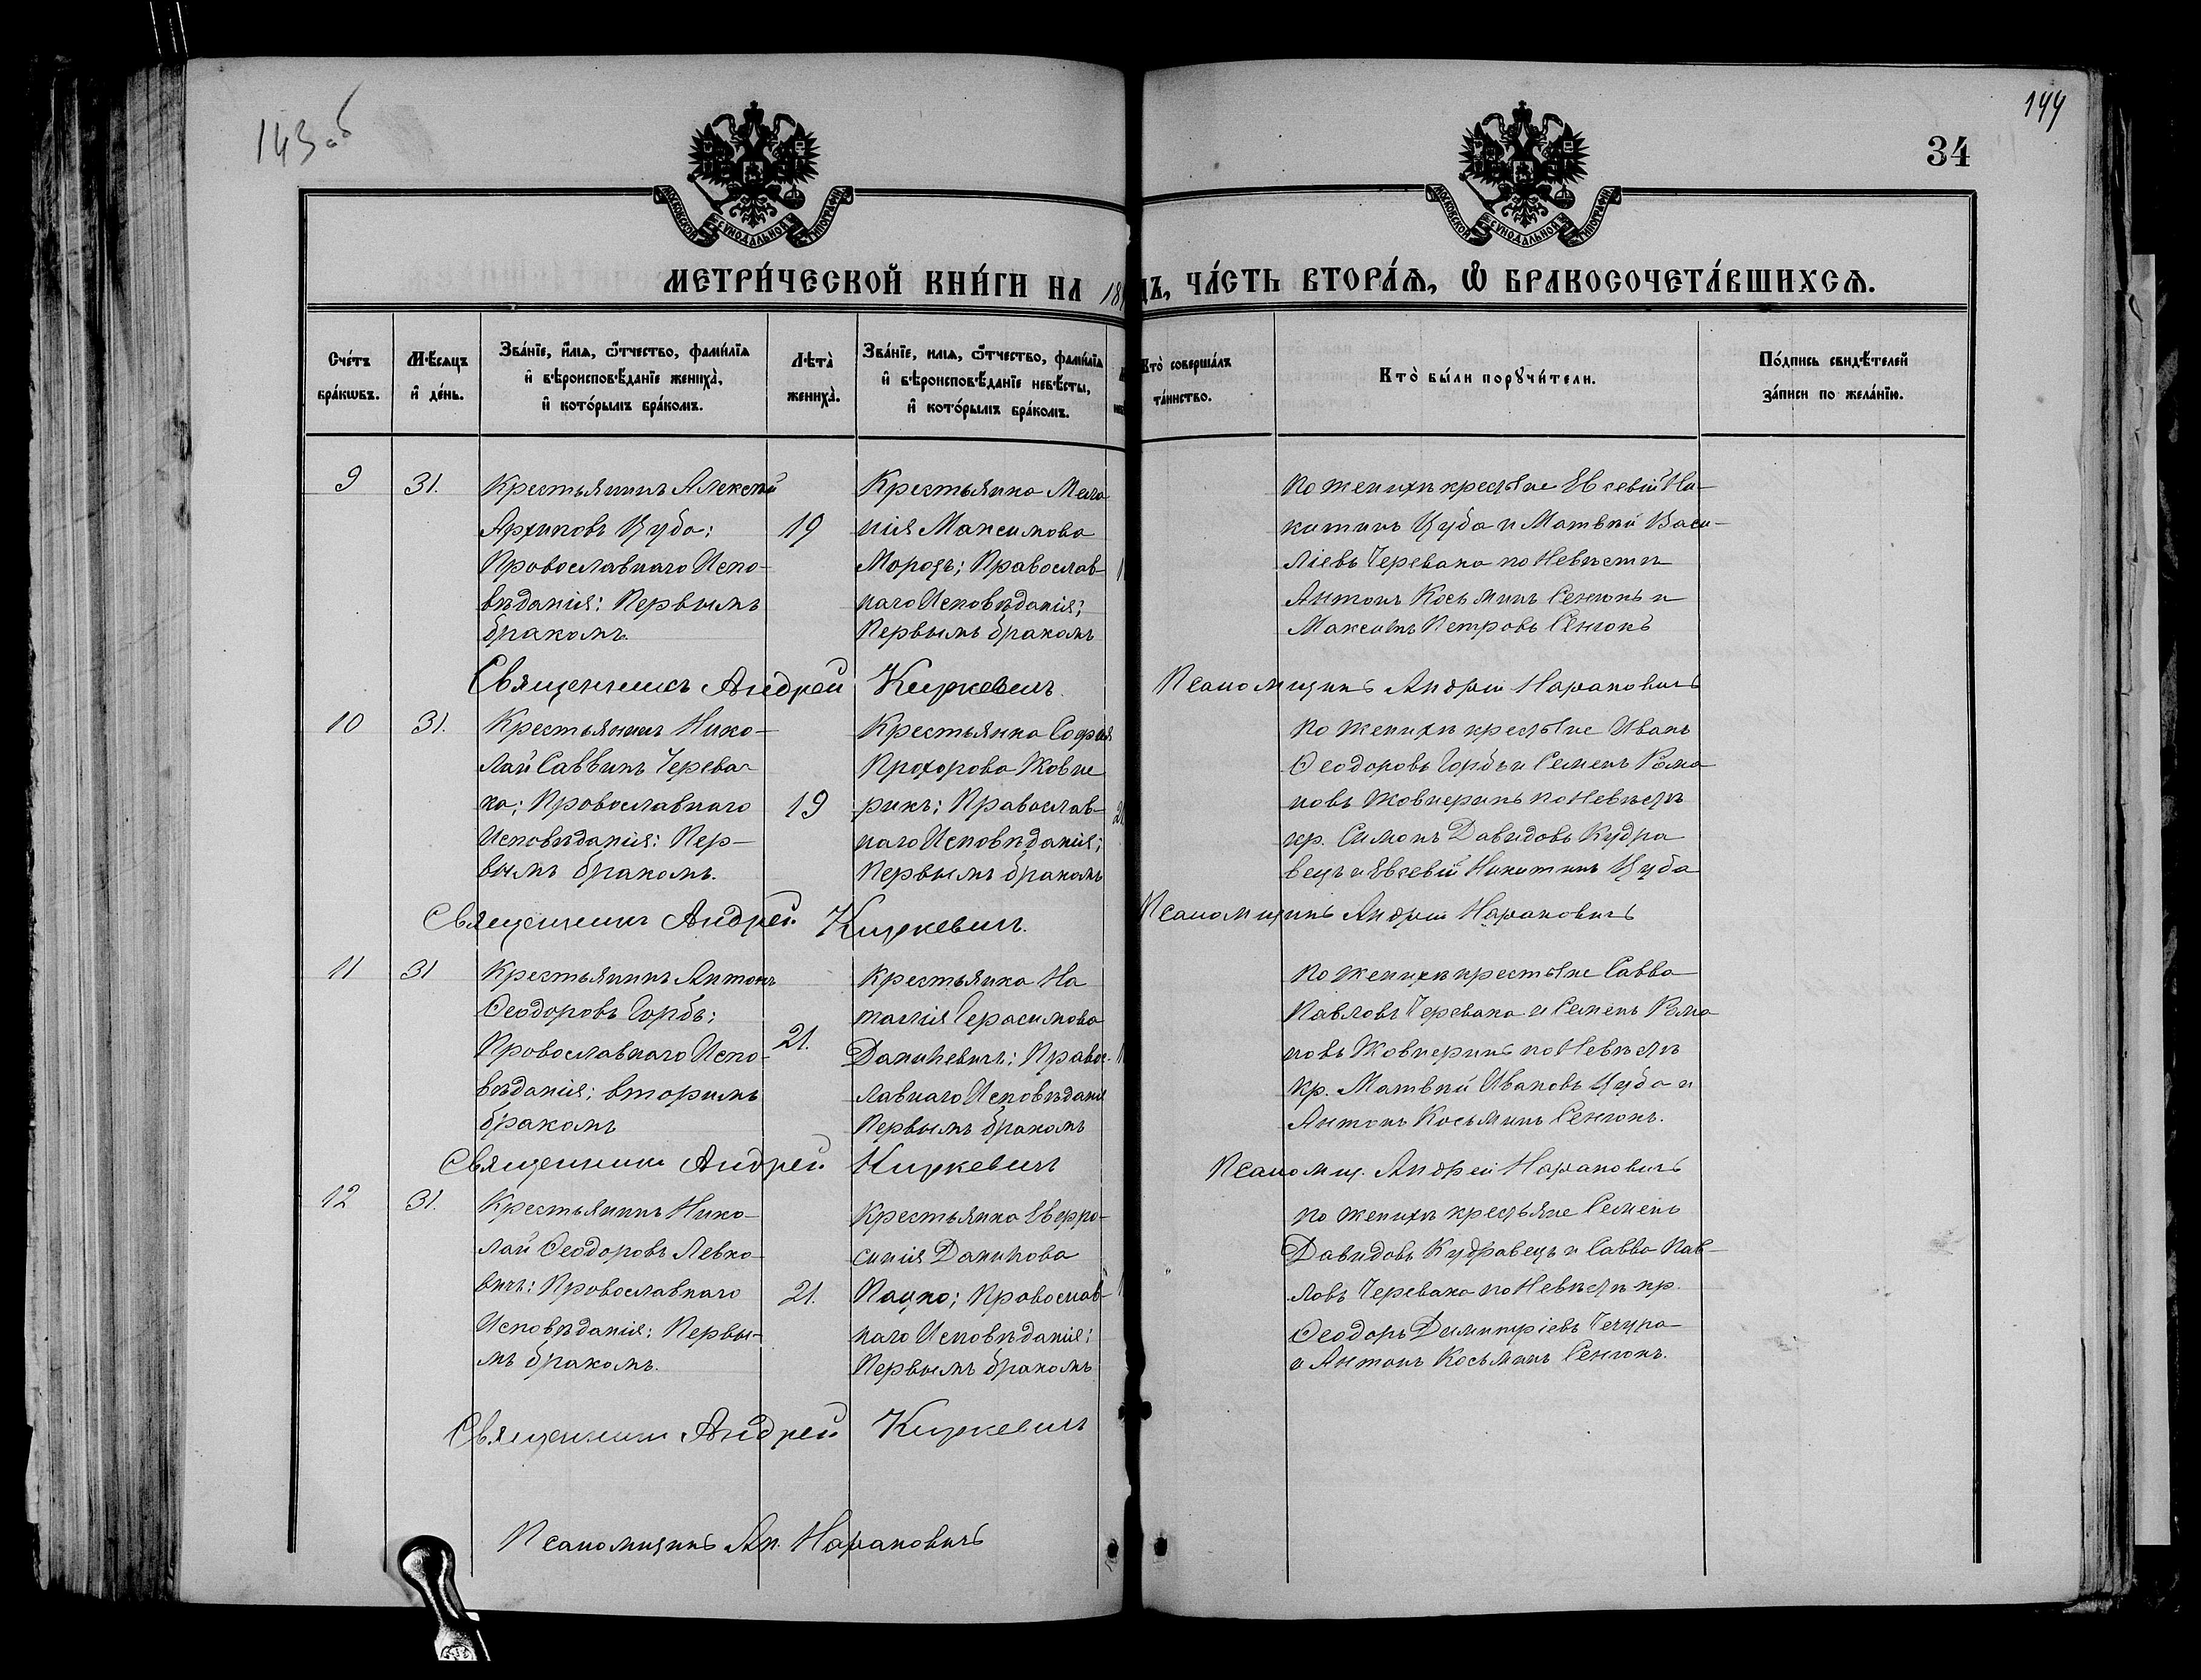 143 об
144
34
МЕТРИ́ЧЕСКОЙ КНИ́ГИ НА 18
ДЪ, ЧА́СТЬ ВТОРА́Ѧ, Ѡ҆ БРАКОСОЧЕТА́ВШИХСѦ.
Сче́тъ бра́кωвъ.
Мѣ́сяцъ и҆ де́нь.
Зва́нїе, и҆́мѧ, ѻ҆́тчество, фами́лїѧ
и҆ вѣроисповѣ́данїе жениха̀,
и҆ кото́рымъ бра́комъ.
Лѣта̀ жениха̀.
Зва́нїе, имѧ, ѻ҆́тчество, фами́лїѧ
и҆ вѣроисповѣ́данїе невѣ́сты,
и҆ кото́рымъ бра́комъ.
Кто̀ соверша́лъ
та́инство.
Кто̀ бы́ли порꙋчи́тели.
По́дпись свидѣ́телей
за́писи по жела́нїю.
9
31.
Крестьянинъ Алексѣй
Архиповъ Цуба;
Православнаго Испо-
вѣданія; Первымъ
бракомъ.
19
Крестьянка Мела
нія Максимова
Морозъ; Православ-
наго Исповѣданія;
Первымъ бракомъ
По женихѣ крестьяне Евсевій Ни-
китинъ Цуба и Матвѣй Васи-
ліевъ Черевако по Невѣстѣ
Антонъ Косьминъ Сенюкъ и
Максимъ Петровъ Сенюкъ
Священникъ Андрей Киркевичъ.
Псаломщикъ Андрей Нарановичъ
10
31.
Крестьянинъ Нико-
лай Саввинъ Черева-
ка; Православнаго
Исповѣданія: Пер-
вымъ бракомъ.
19
Крестьянка Софія
Прохорова Жовне
рикъ; Православ-
наго Исповѣданія;
Первымъ бракомъ
21
По женихѣ крестьяне Иванъ
Ѳеодоровъ Горбъ и Семенъ Рома
новъ Жовнерикъ по Невѣстѣ
кр. Симонъ Давидовъ Кудра
вецъ и Евсевій Никитинъ Цуба
Священникъ Андрей Киркевичъ.
Псаломщикъ Андрей Нарановичъ
11
31
Крестьянинъ Антонъ
Ѳеодоровъ Горбъ;
Православнаго Испо-
вѣданія; вторимъ
бракомъ
21.
Крестьянка На
талія Герасимова
Данилевичъ; Правос-
лавнаго Исповѣданія
Первымъ бракомъ
По женихѣ крестьяне Савва
Павловъ Черевака и Семенъ Рома
новъ Жовнерикъ по Невѣстѣ
кр. Матвѣй Ивановъ Цуба и
Антонъ Косьминъ Сенюкъ.
Священникъ Андрей Киркевичъ
Псаломщ. Андрей Нарановичъ
12
31.
Крестьянинъ Нико-
лай Ѳеодоровъ Левко-
вичъ: Православнаго
Исповѣданія: Первы-
мъ бракомъ.
21.
Крестьянка Евфро-
синія Данилова
Пацко; Православ-
наго Исповѣданія;
Первымъ бракомъ
По женихѣ крестьяне Семенъ
Давидовъ Кудравецъ и Савва Пав-
ловъ Черевака по Невѣстѣ кр.
Ѳеодоръ Димитріевъ Чечура
и Антонъ Косьминъ Сенюкъ.
Священникъ Андрей Киркевичъ
Псаломщикъ Ан. Нарановичъ